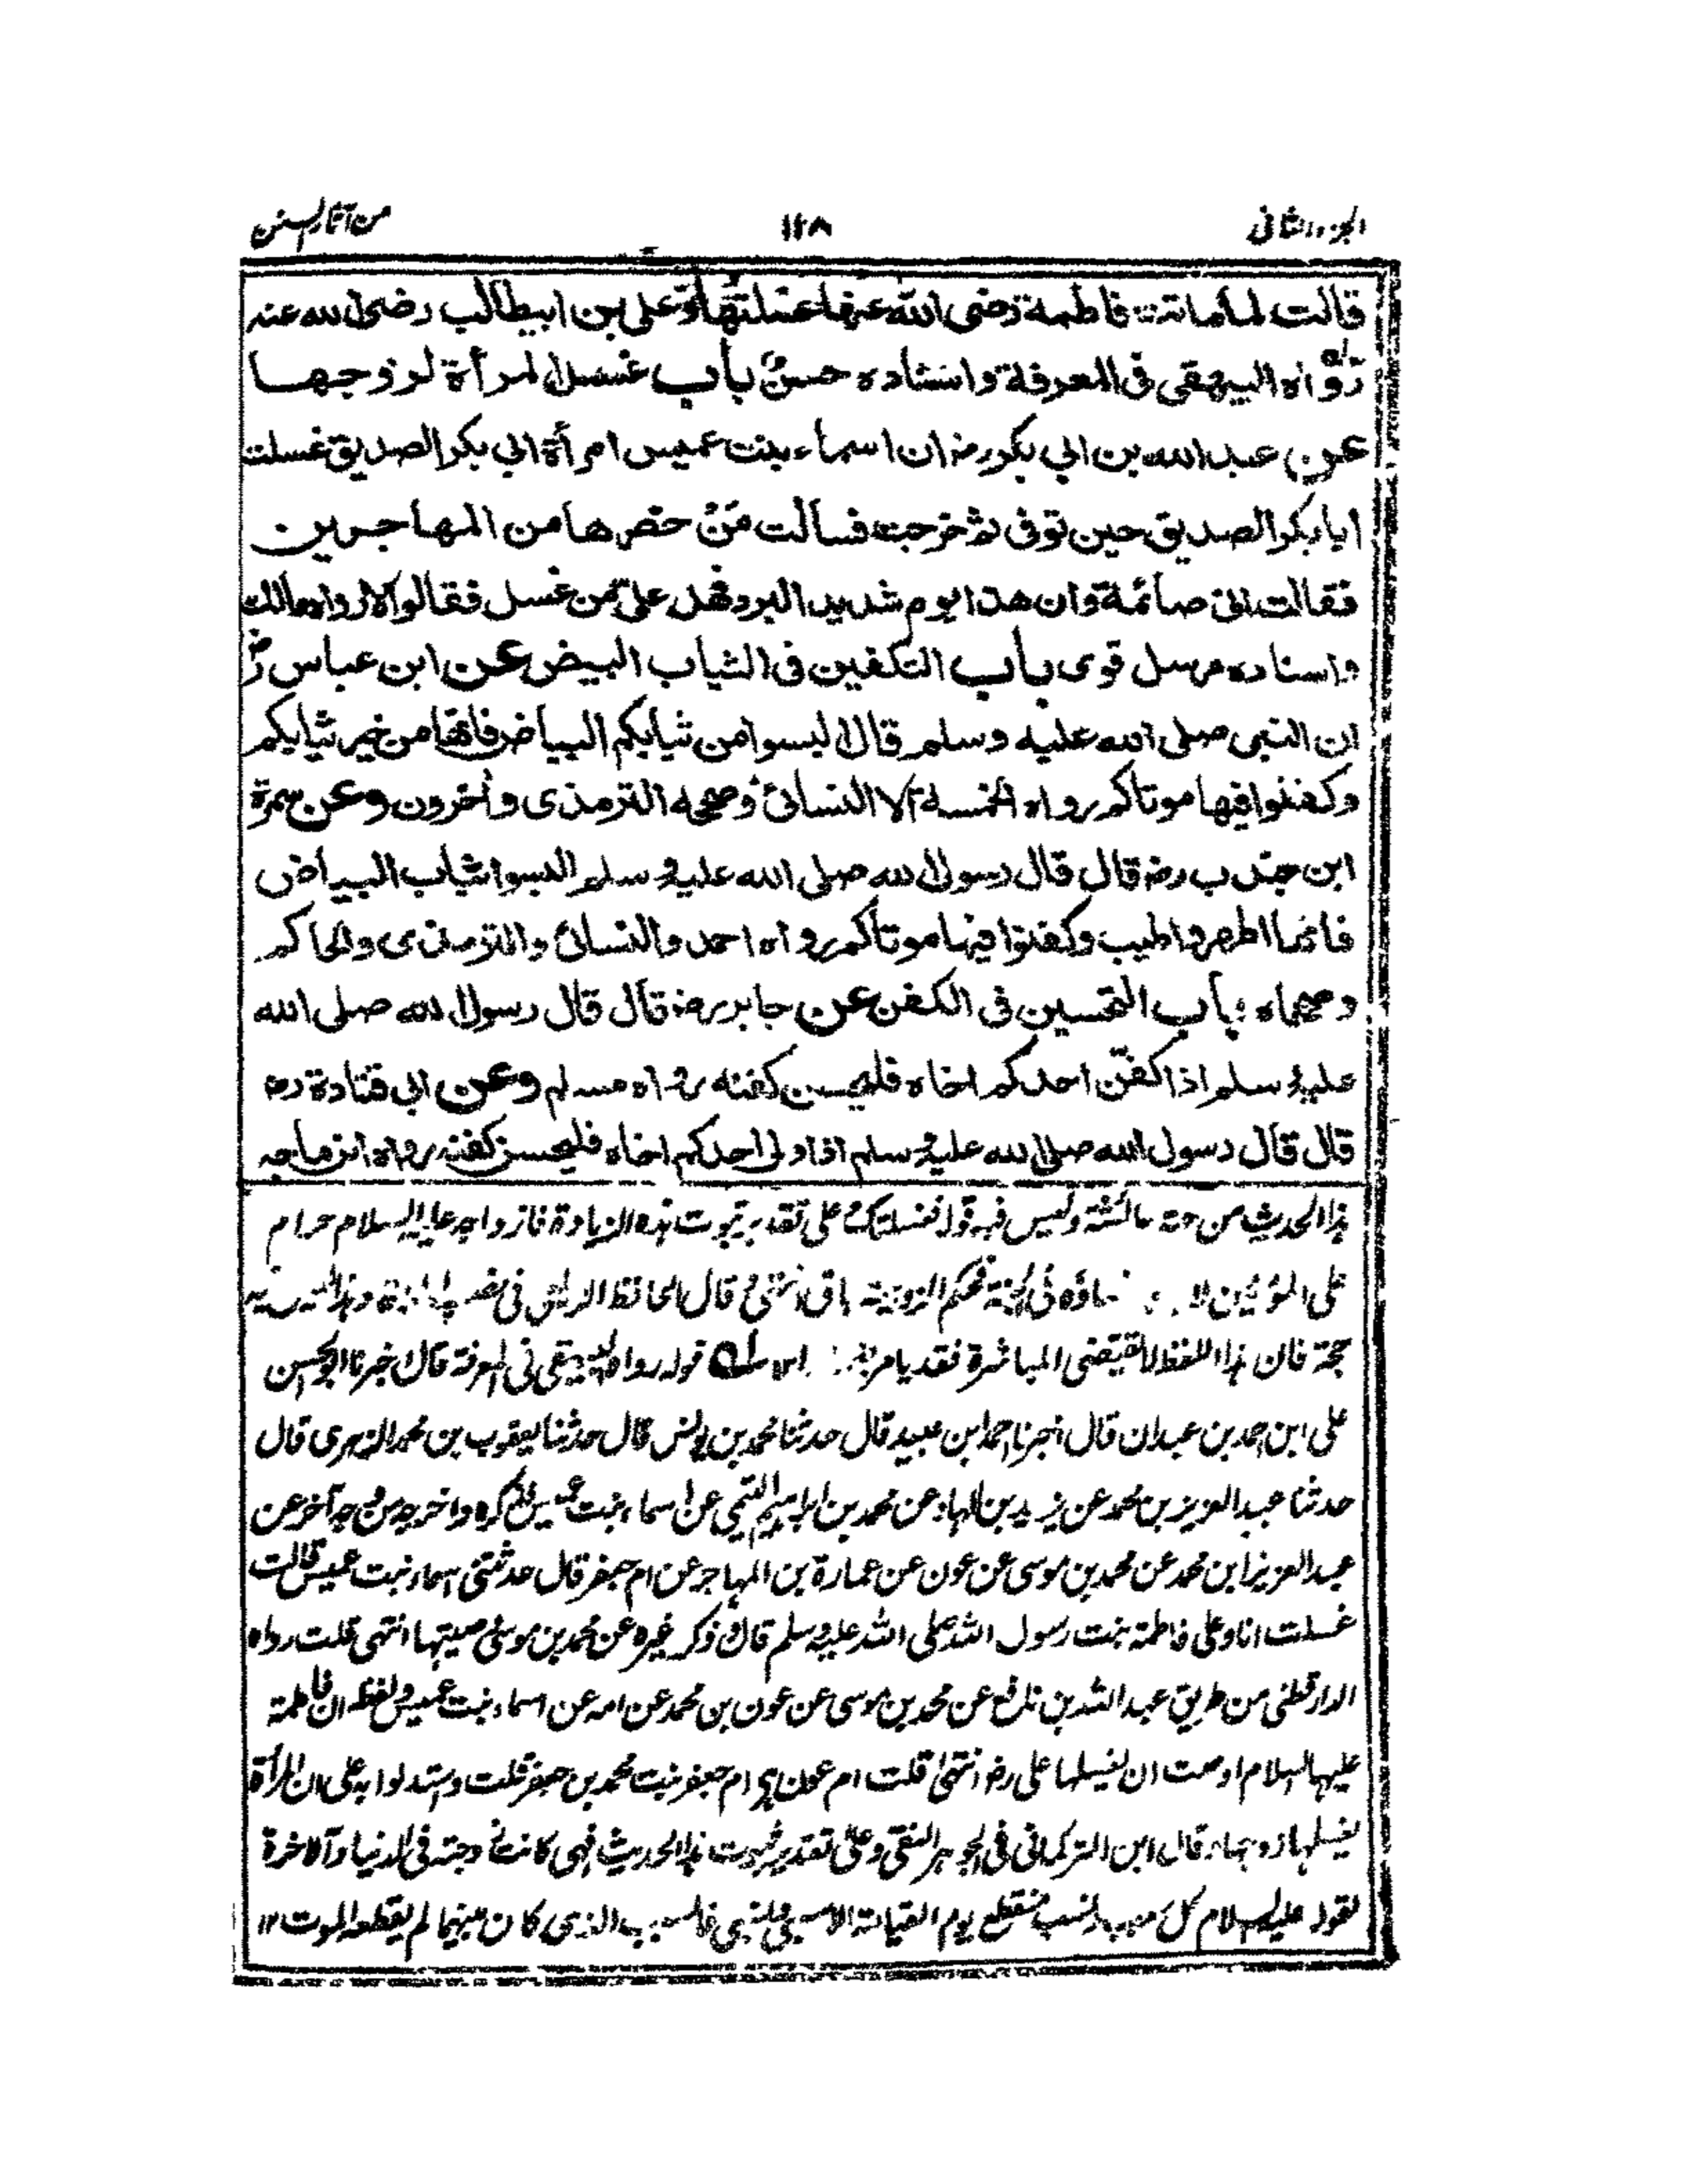 الجزء الثانی ١١٨ من آثار السنن
قالت لما ماتت فاطمة رضی الله عنها غسلتها وعلی بن ابیطالب رضی الله عنه
رواه البیهقی فی المعرفة واسناده حسن باب غسل المرأة لزوجها
عن عبد الله بن ابی بکر رض ان اسماء بنت عمیس امرأة ابی بکر الصدیق غسلت
ابا بکر الصدیق حین توفی ثم خرجت فسألت من حضرها من المهاجرین
فقالت انی صائمة وان هذا یوم شدید البرد فهل علی من غسل فقالوا لا رواه مالك
واسناده مرسل قوی باب التکفین فی الثیاب البیض عن ابن عباس رض
ان النبی صلی الله علیه وسلم قال البسوا من ثیابکم البیاض فانها من خیر ثیابکم
وکفنوا فیها موتاکم رواه الخمسة الا النسائی وصححه الترمذی وأخرون وعن سمرة
ابن جندب رض قال قال رسول الله صلی الله علیه وسلم البسوا ثیاب البیاض
فانها اطهر واطیب وکفنوا فیها موتاکم رواه احمد والنسائی والترمذی والحاکم
وصححاه باب التحسین فی الکفن عن جابر رض قال قال رسول الله صلی الله
علیه وسلم اذا کفن احدکم اخاه فلیحسن کفنه رواه مسلم وعن ابی قتادة رض
قال قال رسول الله صلی الله علیه وسلم اذا ولی احدکم اخاه فلیحسن کفنه رواه ابن ماجه
هذا الحدیث من عائشة ولیس فیه قوله فغسلتك علی تقدیر ثبوت هذه الزیادة فازواجه علیه السلام حرام
علی المؤمنین فحکم الزوجیة باق انتهی قال الحافظ الزیلعی فی
حجة فان هذا اللفظ لا یقتضی المباشرة فقد یامر قوله رواه البیهقی فی المعرفة قال اخبرنا ابو الحسن
علی ابن احمد بن عبدان قال اخبرنا احمد بن عبید قال حدثنا محمد بن یونس قال حدثنا یعقوب بن محمد الزهری قال
حدثنا عبد العزیز بن محمد عن یزید بن الهاد عن محمد بن ابراهیم التیمی عن اسماء بنت عمیس فذکره واخرجه من وجه آخر عن
عبد العزیز ابن محمد عن محمد بن موسی عن عون عن عمارة بن المهاجر عن ام جعفر قال حدثتنی اسماء بنت عمیس قالت
غسلت انا وعلی فاطمة بنت رسول الله صلی الله علیه وسلم قال وذکر غیره عن محمد بن موسی وصیتها انتهی قلت رواه
الدارقطنی من طریق عبد الله بن نافع عن محمد بن موسی عن عون بن محمد عن امه عن اسماء بنت عمیس ولفظه ان فاطمة
علیها السلام اوصت ان یغسلها علی رض انتهی قلت ام عون هی ام جعفر بنت محمد بن جعفر قلت واستدلوا به علی ان المرأة
یغسلها زوجها وقال ابن الترکمانی فی الجوهر النقی وعلی تقدیر ثبوت هذا الحدیث فهی کانت زوجته فی الدنیا والآخرة
لقوله علیه السلام کل سبب ونسب ینقطع یوم القیامة الا سببی ونسبی فالسبب الذی کان بینهما لم یقطعه الموت ١٢